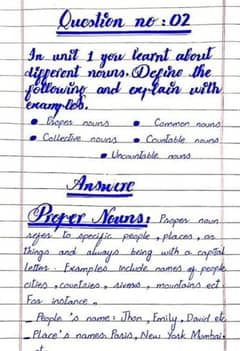 Question no : 02
In unit 1 you learnt about
different nouns. Define the
following and explain with
examples.
• Proper nouns • Common nouns
• Collective nouns • Countable nouns
• Uncountable nouns
Answere
Proper Nouns: Proper noun
refer to specific people, places, or
things and always being with a capital
letter. Examples include names of people
cities, countries, rivers, mountains ect.
For instance.
_ People 's name: Jhon, Emily, David etc
_ Place's names: Paris, New York Mumbai